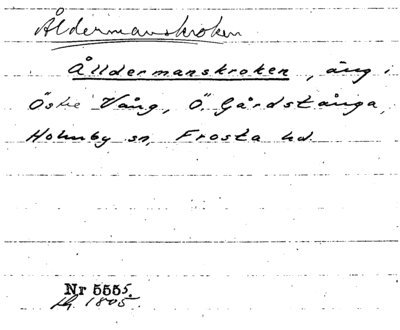 Åldermanskroken
Ålldermanskroken, äng i
Östre Vång, Ö. Gårdstånga,
Holmby sn, Frosta hd.
Nr 5555
1805.